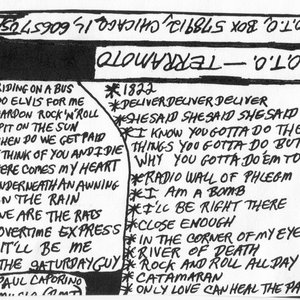 O.T.O. BOX 578912, CHICAGO, IL 60657 US
O.T.O. — TERRAMOTO
RIDING ON A BUS
DO ELVIS FOR ME
PARDON ROCK 'N' ROLL
SPIT ON THE SUN
WHEN DO WE GET PAID
THINK OF YOU AND I DIE
HERE COMES MY HEART
UNDERNEATH AN AWNING
IN THE RAIN
WE ARE THE RATS
OVERTIME EXPRESS
IT'LL BE ME
THE SATURDAY GUY
PAUL CAPORINO
*1822
*DELIVER DELIVER DELIVER
*SHE SAID SHE SAID SHE SAID
*I KNOW YOU GOTTA DO THE
THINGS YOU GOTTA DO BUT
WHY YOU GOTTA DO 'EM TO
*RADIO WALL OF PHLEGM
*I AM A BOMB
*I'LL BE RIGHT THERE
*CLOSE ENOUGH
*IN THE CORNER OF MY EYE
*RIVER OF DEATH
*ROCK AND ROLL ALL DAY
*CATTAMARAN
*ONLY LOVE CAN HEAL THE